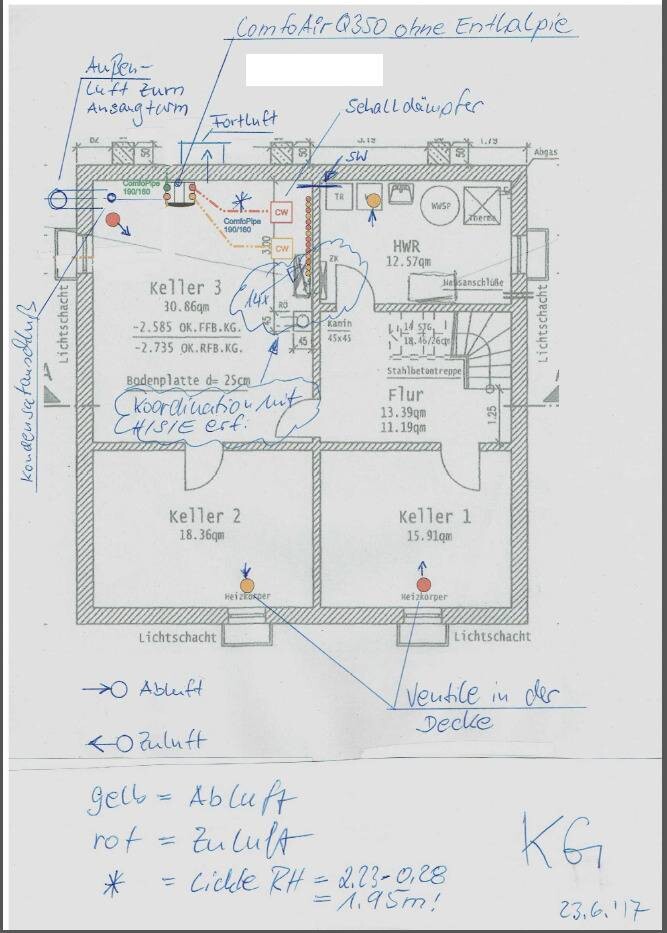 ComfoAir Q350 ohne Enthalpie
Außen-
luft zum
Ansaugturm
Fortluft
Schalldämpfer
SW
62
50
50
3.19
50
1.79
Abgas
ComfoPipe
190/160
ComfoPipe
190/160
CW
CW
3.00
TR
WWSP
Therme
HWR
12.57qm
Hausanschlüße
ZK
14x
RÖ
45
Kamin
45x45
Keller 3
30.86qm
-2.585 OK.FFB.KG.
-2.735 OK.RFB.KG.
Bodenplatte d= 25cm
Koordination mit
H/S/E erf.
14 STG
18.46/26cm
Stahlbetontreppe
Flur
13.39qm
11.19qm
1.25
Lichtschacht
Lichtschacht
Kondensatanschluß
A
Keller 2
18.36qm
Keller 1
15.91qm
Heizkörper
Heizkörper
Lichtschacht
Lichtschacht
Abluft
Zuluft
Ventile in der
Decke
gelb = Abluft
rot = Zuluft
* = Lichte RH = 2.23-0.28
= 1.95m!
KG
23.6.'17